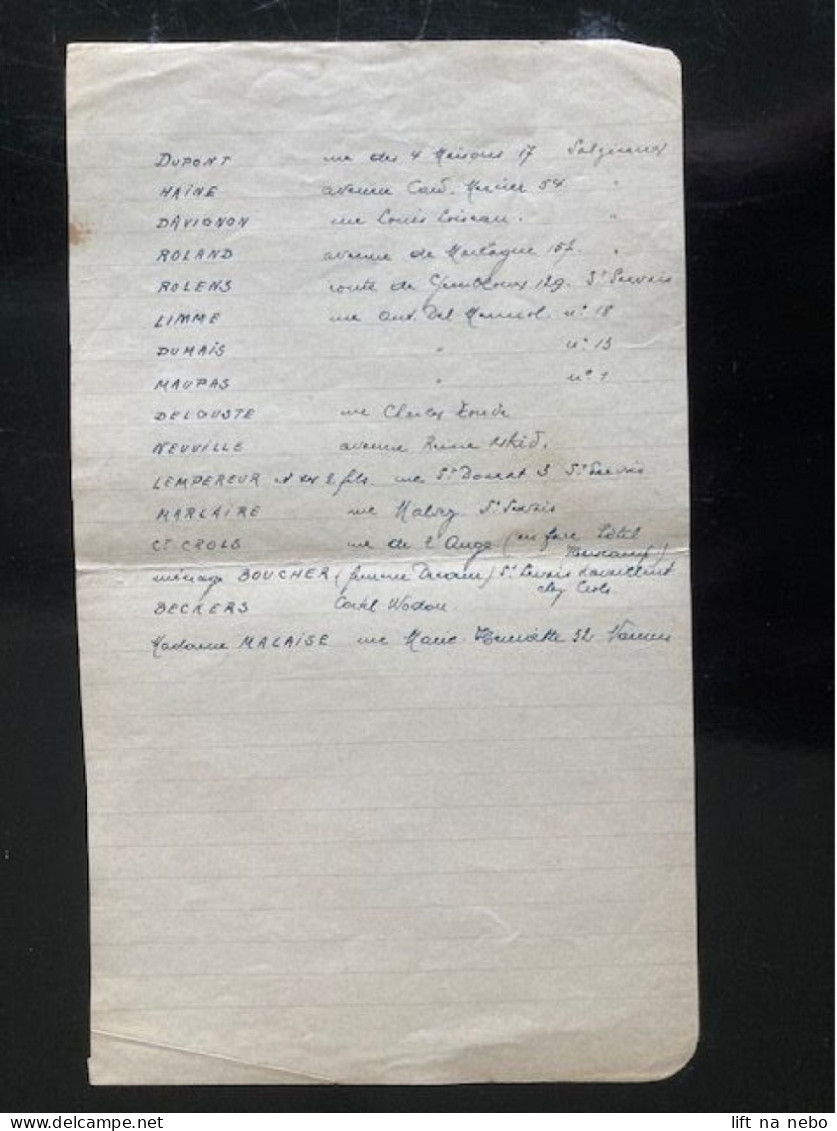 DUPONT rue des 4 Maisons 17
HAINE avenue Card. Mercier 54 "
DAVIGNON rue Louis Loiseau. "
ROLAND avenue de Marlagne 157. "
ROLENS route de Gembloux 129 St Servais
LIMME rue Ant. Del Marmol. n° 18
DUMAIS " n° 13
MAUPAS " n° 1
DELOUSTE rue Charles
NEUVILLE avenue Reine Astrid.
LEMPEREUR et ses 2 fils rue St Donat 3 St Servais
MARLAIRE rue Nalvy St Servais
Ct CROLS rue de l'Ange (en face hôtel
ménage BOUCHER (femme) St Servais travaillent
chez Crols
BECKERS Cortil Wodon.
Madame MALAISE rue Marie-Henriette 32 Namur
lift na nebo